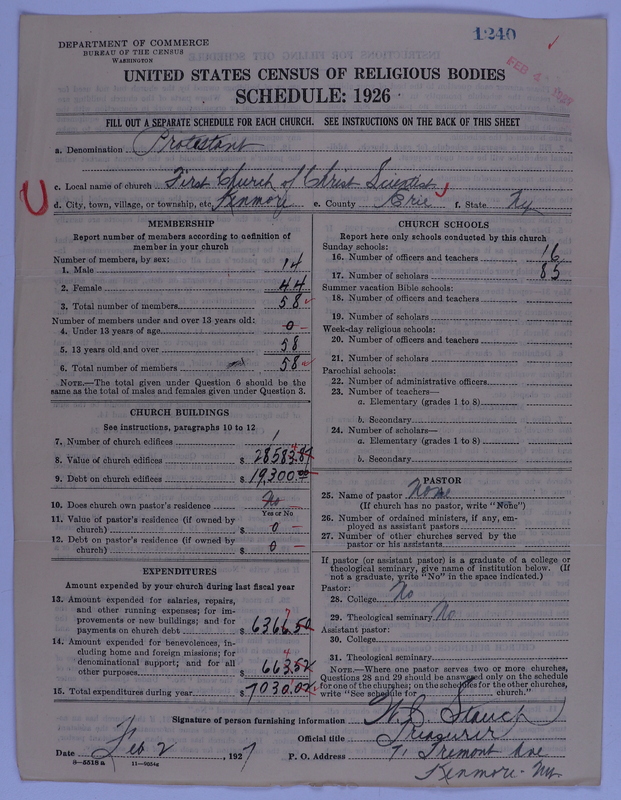 1240
DEPARTMENT OF COMMERCE
BUREAU OF THE CENSUS
WASHINGTON
FEB 4 1927
UNITED STATES CENSUS OF RELIGIOUS BODIES
SCHEDULE: 1926
FILL OUT A SEPARATE SCHEDULE FOR EACH CHURCH. SEE INSTRUCTIONS ON THE BACK OF THIS SHEET
a. Denomination Protestant
c. Local name of church First Church of Christ Scientist
d. City, town, village, or township, etc. Kenmore e. County Erie f. State Ny
MEMBERSHIP
Report number of members according to definition of
member in your church
Number of members, by sex:
1. Male 14
2. Female 44
3. Total number of members 58
Number of members under and over 13 years old:
4. Under 13 years of age 0
5. 13 years old and over 58
6. Total number of members 58
NOTE.—The total given under Question 6 should be the
same as the total of males and females given under Question 3.
CHURCH BUILDINGS
See instructions, paragraphs 10 to 12
7. Number of church edifices 1
8. Value of church edifices $ 28583.84
9. Debt on church edifices $ 19,300.00
10. Does church own pastor's residence No
Yes or No
11. Value of pastor's residence (if owned by
church) $ 0
12. Debt on pastor's residence (if owned by
church) $ 0
EXPENDITURES
Amount expended by your church during last fiscal year
13. Amount expended for salaries, repairs,
and other running expenses; for im-
provements or new buildings; and for
payments on church debt $ 6366.50
14. Amount expended for benevolences, in-
cluding home and foreign missions; for
denominational support; and for all
other purposes $ 663.52
15. Total expenditures during year $ 7030.02
CHURCH SCHOOLS
Report here only schools conducted by this church
Sunday schools:
16. Number of officers and teachers 16
17. Number of scholars 85
Summer vacation Bible schools:
18. Number of officers and teachers
19. Number of scholars
Week-day religious schools:
20. Number of officers and teachers
21. Number of scholars
Parochial schools:
22. Number of administrative officers
23. Number of teachers—
a. Elementary (grades 1 to 8)
b. Secondary
24. Number of scholars—
a. Elementary (grades 1 to 8)
b. Secondary
PASTOR
25. Name of pastor None
(If church has no pastor, write "None")
26. Number of ordained ministers, if any, em-
ployed as assistant pastors
27. Number of other churches served by the
pastor or his assistants
If pastor (or assistant pastor) is a graduate of a college or
theological seminary, give name of institution below. (If
not a graduate, write "No" in the space indicated.)
Pastor:
28. College No
29. Theological seminary No
Assistant pastor:
30. College
31. Theological seminary
NOTE.—Where one pastor serves two or more churches,
Questions 28 and 29 should be answered only on the schedule
for one of the churches; on the schedules for the other churches,
write "See schedule for church."
Signature of person furnishing information W. C. Stauch
Official title Treasurer
Date Feb 2, 1927 P. O. Address 71 Tremont Ave
Kenmore - Ny.
8—5518 a 11—9054a